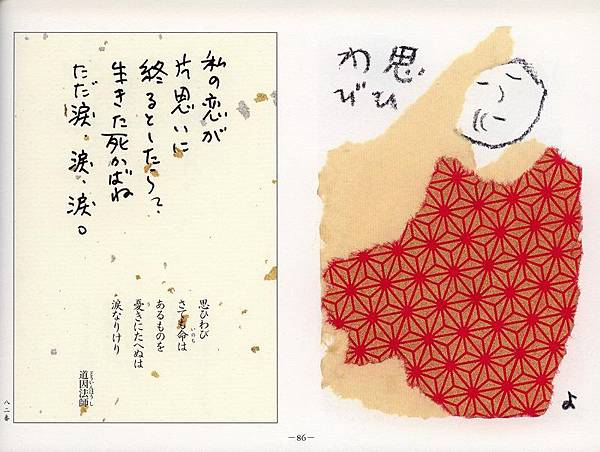 私の恋が
片思いに
終るとしたら？
生きた死かばね
ただ涙．涙、涙。
思ひわび
さても命は
いのち
あるものを
憂きにたへぬは
う
涙なりけり
道因法師
どういんほうし
八二番
思ひ
わび
よ
—86—